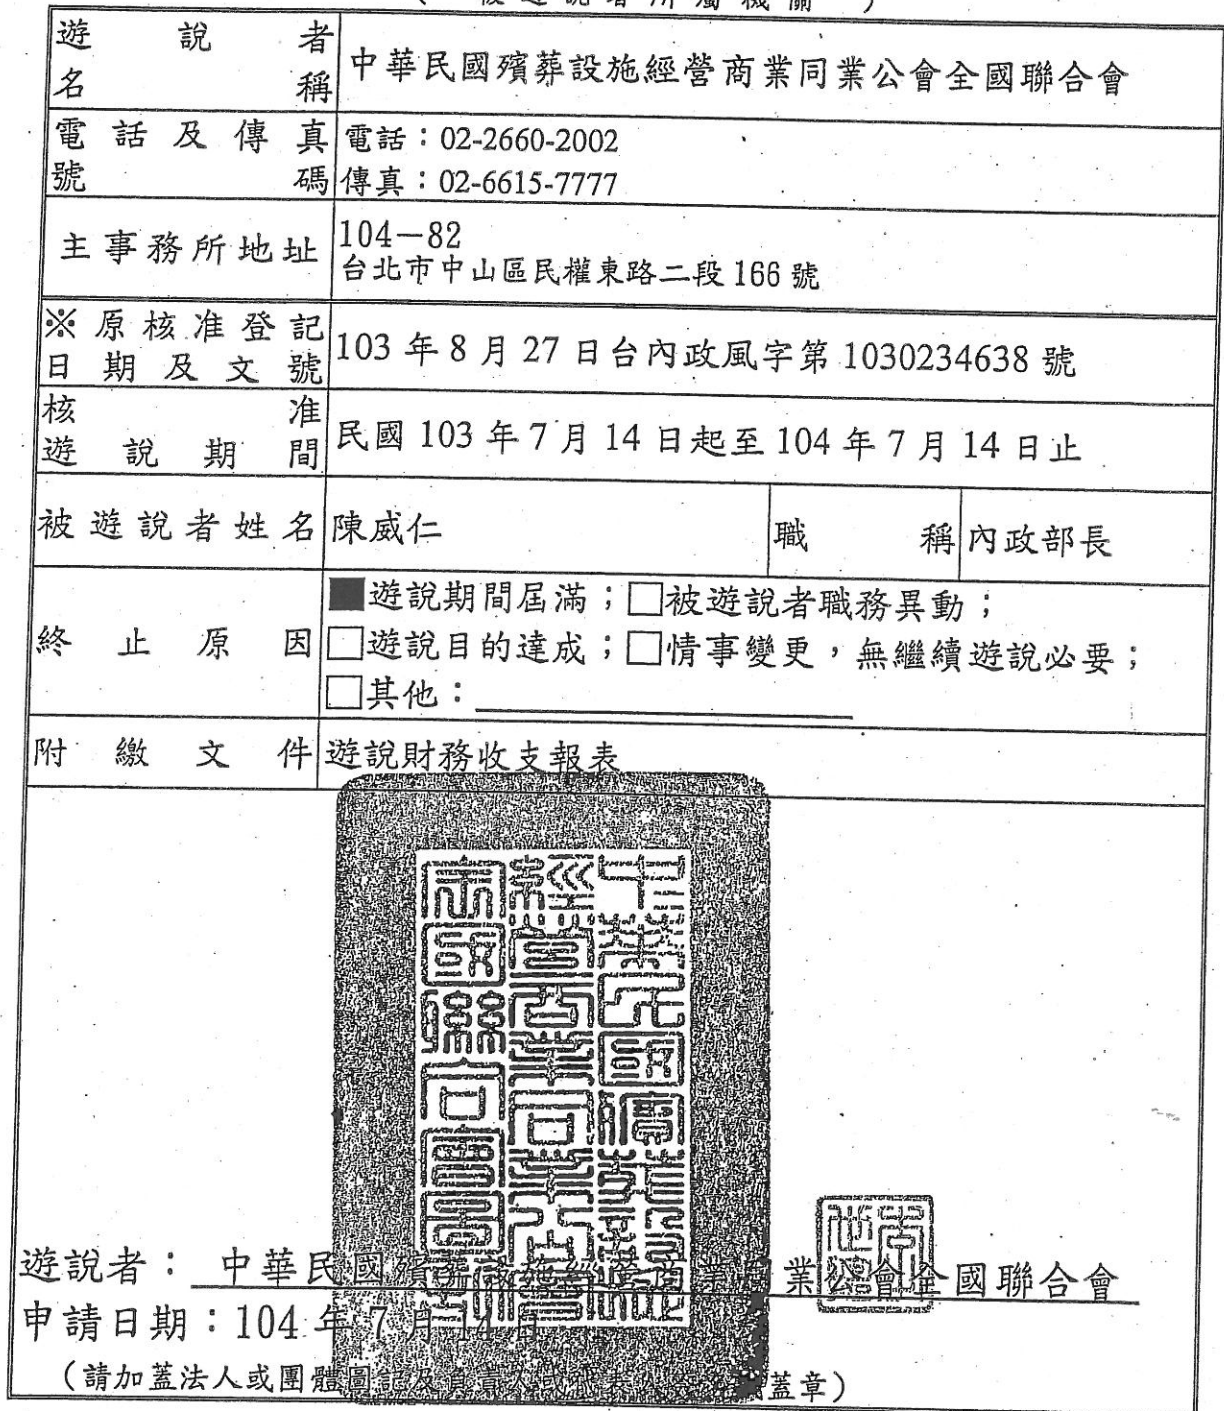 （ 被遊說者所屬機關 ）
遊說者
名稱
中華民國殯葬設施經營商業同業公會全國聯合會
電話及傳真
號碼
電話：02-2660-2002
傳真：02-6615-7777
主事務所地址
104－82
台北市中山區民權東路二段 166 號
※原核准登記
日期及文號
103 年 8 月 27 日台內政風字第 1030234638 號
核准
遊說期間
民國 103 年 7 月 14 日起至 104 年 7 月 14 日止
被遊說者姓名
陳威仁
職稱
內政部長
終止原因
■遊說期間屆滿；□被遊說者職務異動；
□遊說目的達成；□情事變更，無繼續遊說必要；
□其他：
附繳文件
遊說財務收支報表
遊說者：中華民國殯葬設施經營商業同業公會全國聯合會
申請日期：104 年 7 月 14 日
（請加蓋法人或團體圖記及負責人 蓋章）